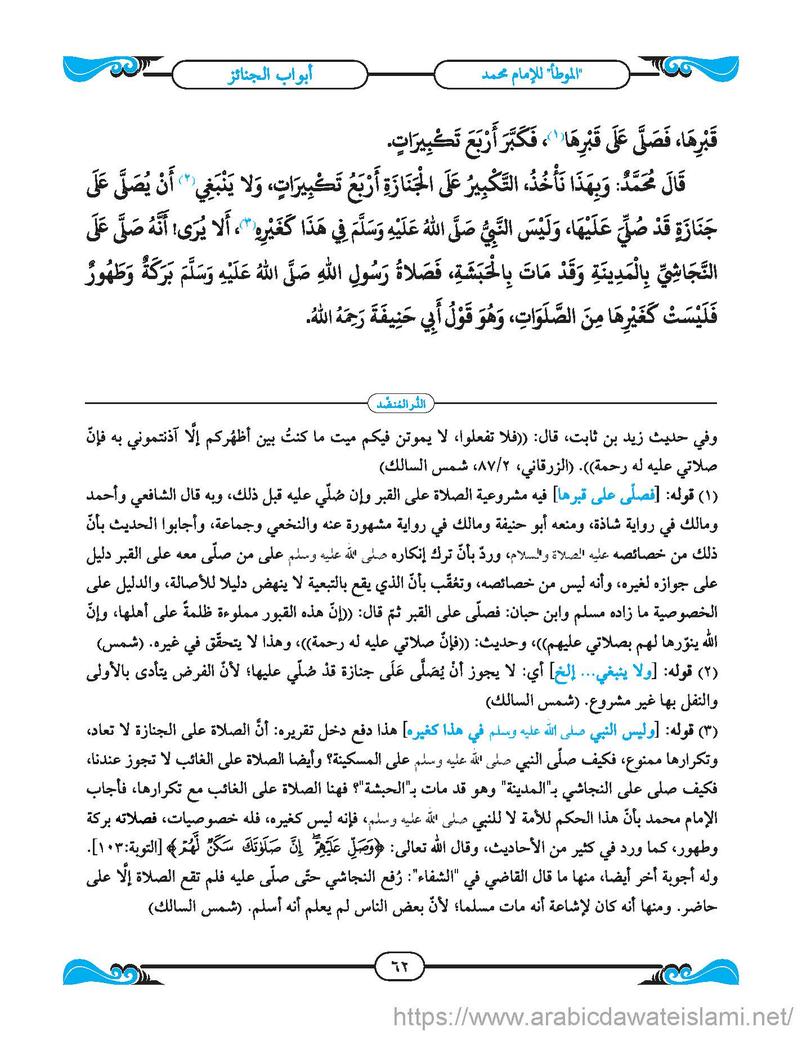 "الموطأ" للإمام محمد
أبواب الجنائز
قَبْرِهَا، فَصَلَّى عَلَى قَبْرِهَا(١)، فَكَبَّرَ أَرْبَعَ تَكْبِيرَاتٍ.
قَالَ مُحَمَّدٌ: وَبِهَذَا نَأْخُذُ، التَّكْبِيرُ عَلَى الْجَنَازَةِ أَرْبَعُ تَكْبِيرَاتٍ، وَلا يَنْبَغِي(٢) أَنْ يُصَلَّى عَلَى
جَنَازَةٍ قَدْ صُلِّيَ عَلَيْهَا، وَلَيْسَ النَّبِيُّ صَلَّى اللهُ عَلَيْهِ وَسَلَّمَ فِي هَذَا كَغَيْرِهِ(٣)، أَلا يُرَى! أَنَّهُ صَلَّى عَلَى
النَّجَاشِيِّ بِالْمَدِينَةِ وَقَدْ مَاتَ بِالْحَبَشَةِ، فَصَلاةُ رَسُولِ اللهِ صَلَّى اللهُ عَلَيْهِ وَسَلَّمَ بَرَكَةٌ وَطَهُورٌ
فَلَيْسَتْ كَغَيْرِهَا مِنَ الصَّلَوَاتِ، وَهُوَ قَوْلُ أَبِي حَنِيفَةَ رَحِمَهُ اللهُ.
الدُّر المُنضّد
وفي حديث زيد بن ثابت، قال: ((فلا تفعلوا، لا يموتن فيكم ميت ما كنتُ بين أظهُركم إلَّا آذنتموني به فإنّ
صلاتي عليه له رحمة)). (الزرقاني، ٨٧/٢، شمس السالك)
(١) قوله: [فصلّى على قبرها] فيه مشروعية الصلاة على القبر وإن صُلّي عليه قبل ذلك، وبه قال الشافعي وأحمد
ومالك في رواية شاذة، ومنعه أبو حنيفة ومالك في رواية مشهورة عنه والنخعي وجماعة، وأجابوا الحديث بأنّ
ذلك من خصائصه عليه الصلاة والسلام، وردّ بأنّ ترك إنكاره صلى الله عليه وسلم على من صلّى معه على القبر دليل
على جوازه لغيره، وأنه ليس من خصائصه، وتعُقّب بأنّ الذي يقع بالتبعية لا ينهض دليلا للأصالة، والدليل على
الخصوصية ما زاده مسلم وابن حبان: فصلّى على القبر ثمّ قال: ((إنّ هذه القبور مملوءة ظلمةً على أهلها، وإنّ
الله ينوّرها لهم بصلاتي عليهم))، وحديث: ((فإنّ صلاتي عليه له رحمة))، وهذا لا يتحقّق في غيره. (شمس)
(٢) قوله: [ولا ينبغي... إلخ] أي: لا يجوز أنْ يُصَلَّى عَلَى جنازة قدْ صُلّي عليها؛ لأنّ الفرض يتأدى بالأولى
والنفل بها غير مشروع. (شمس السالك)
(٣) قوله: [وليس النبي صلى الله عليه وسلم في هذا كغيره] هذا دفع دخل تقريره: أنَّ الصلاة على الجنازة لا تعاد،
وتكرارها ممنوع، فكيف صلّى النبي صلى الله عليه وسلم على المسكينة؟ وأيضا الصلاة على الغائب لا تجوز عندنا،
فكيف صلى على النجاشي بـ"المدينة" وهو قد مات بـ"الحبشة"؟ فهنا الصلاة على الغائب مع تكرارها، فأجاب
الإمام محمد بأنّ هذا الحكم للأمة لا للنبي صلى الله عليه وسلم، فإنه ليس كغيره، فله خصوصيات، فصلاته بركة
وطهور، كما ورد في كثير من الأحاديث، وقال الله تعالى: ﴿وَصَلِّ عَلَيْهِمْ ۖ إِنَّ صَلَوٰتَكَ سَكَنٌ لَّهُمْ﴾ [التوبة:١٠٣].
وله أجوبة أخر أيضا، منها ما قال القاضي في "الشفاء": رُفع النجاشي حتّى صلّى عليه فلم تقع الصلاة إلَّا على
حاضر. ومنها أنه كان لإشاعة أنه مات مسلما؛ لأنّ بعض الناس لم يعلم أنه أسلم. (شمس السالك)
٦٢
https://www.arabicdawateislami.net/